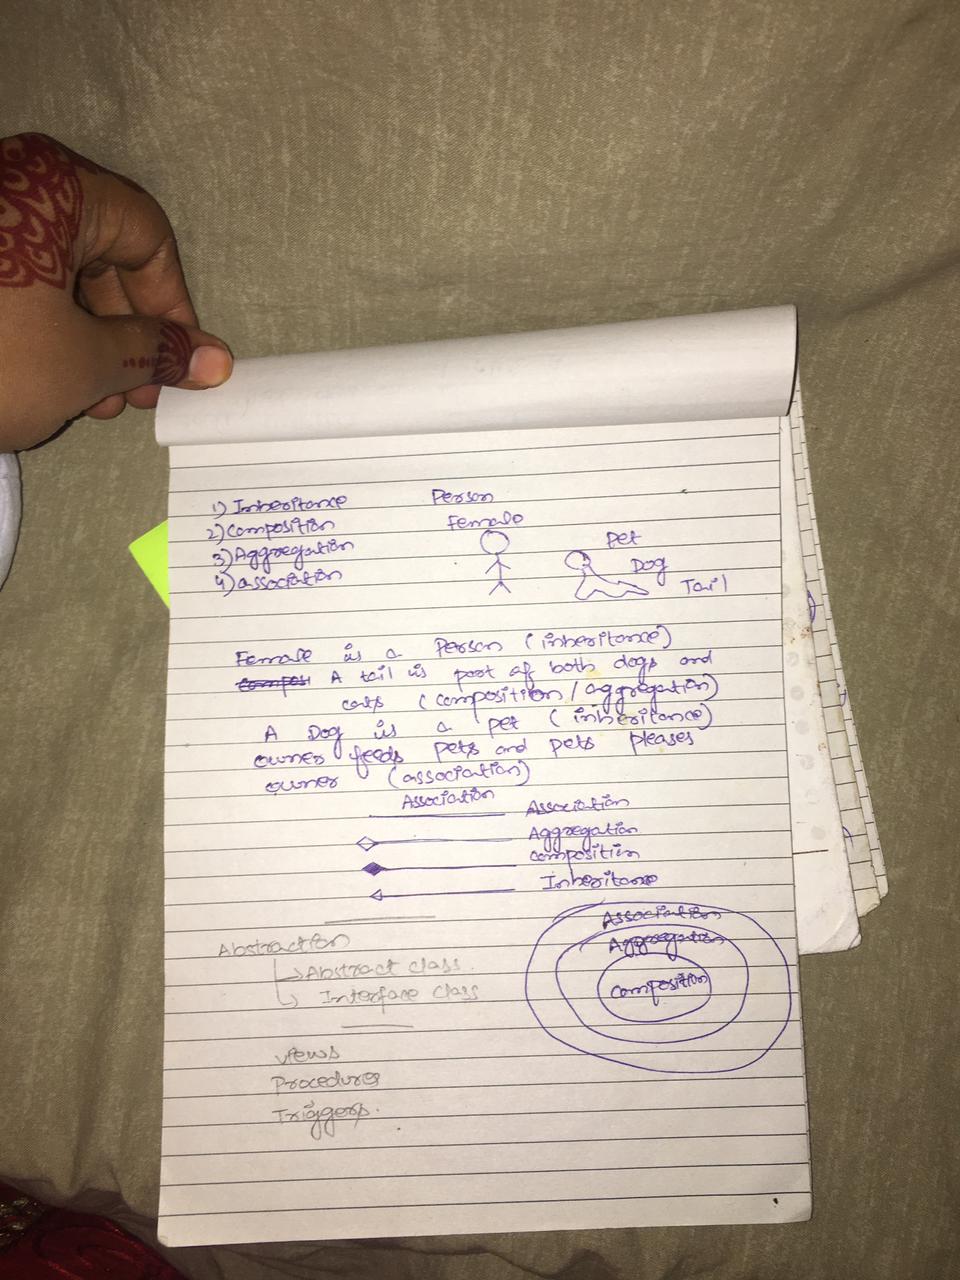 1) Inheritance
2) Composition
3) Aggregation
4) association
Person
Female
Pet
Dog
Tail
Female is a Person (inheritance)
A tail is part of both dogs and
cats (composition / aggregation)
A Dog is a pet (inheritance)
owner feeds pets and pets pleases
owner (association)
Association
Association
Aggregation
Composition
Inheritance
Abstraction
Abstract class.
Interface class
views
Procedures
Triggers.
Association
Aggregation
Composition